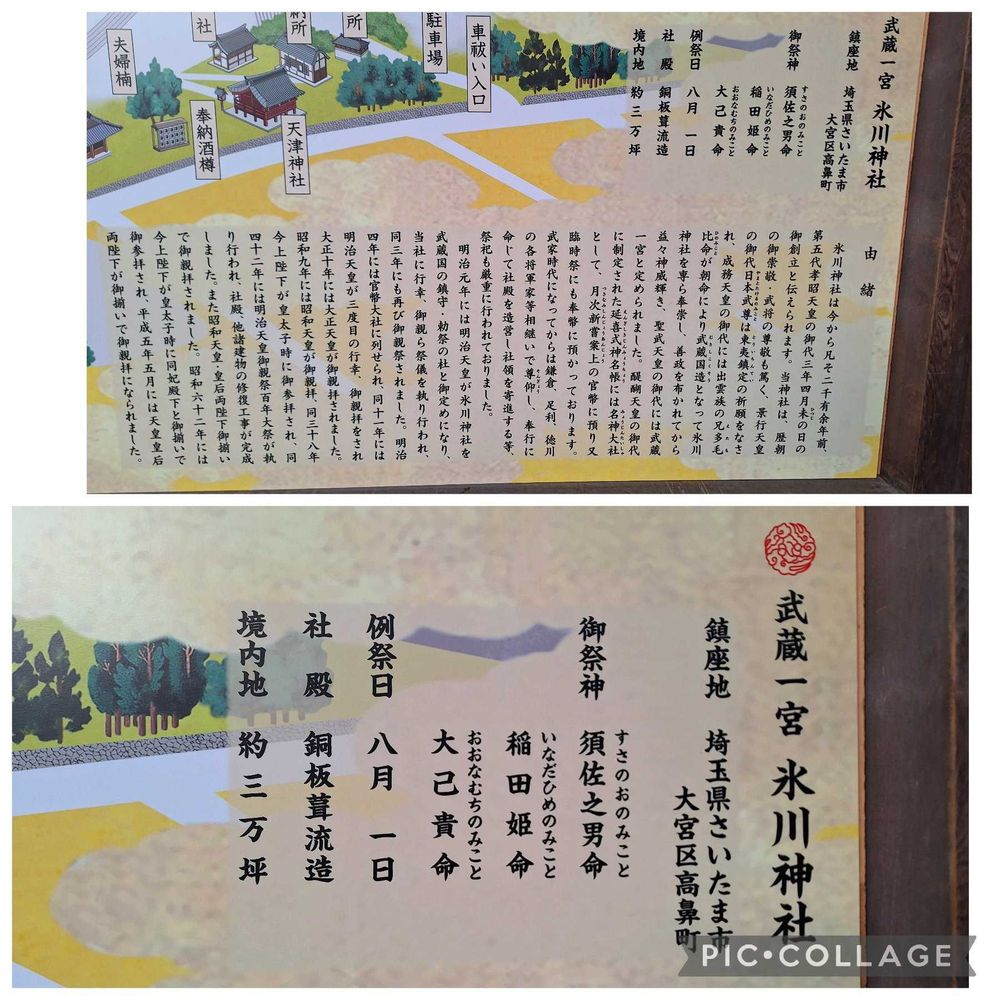 社
納所
所
駐車場
車祓い入口
夫婦楠
奉納酒樽
天津神社
武蔵一宮 氷川神社
鎮座地 埼玉県さいたま市
大宮区高鼻町
御祭神 須佐之男命
すさのおのみこと
稲田姫命
いなだひめのみこと
大己貴命
おおなむちのみこと
例祭日 八月 一日
社 殿 銅板葺流造
境内地 約三万坪
由 緒
氷川神社は今から凡そ二千有余年前、
第五代孝昭天皇の御代三年四月未の日の
御創立と伝えられます。当神社は、歴朝
の御崇敬・武将の尊敬も篤く、景行天皇
の御代日本武尊は東夷鎮定の祈願をなさ
れ、成務天皇の御代には出雲族の兄多毛
比命が朝命により武蔵国造となって氷川
神社を専ら奉崇し、善政を布かれてから
益々神威輝き、聖武天皇の御代には武蔵
一宮と定められました。醍醐天皇の御代
に制定された延喜式神名帳には名神大社
として、月次新嘗案上の官幣に預り又
臨時祭にも奉幣に預かっております。
武家時代になってからは鎌倉、足利、徳川
の各将軍家等相継いで尊仰し、奉行に
命じて社殿を造営し社領を寄進する等、
祭祀も厳重に行われておりました。
明治元年には明治天皇が氷川神社を
武蔵国の鎮守・勅祭の社と御定めになり、
当社に行幸、御親ら祭儀を執り行われ、
同三年にも再び御親祭されました。明治
四年には官幣大社に列せられ、同十一年には
明治天皇が三度目の行幸、御親拝をされ
大正十年には大正天皇が御親拝されました。
昭和九年には昭和天皇が御親拝、同三十八年
今上陛下が皇太子時に御参拝され、同
四十二年には明治天皇御親祭百年大祭が執
り行われ、社殿、他諸建物の修復工事が完成
しました。また昭和天皇・皇后両陛下御揃い
で御親拝されました。昭和六十二年には
今上陛下が皇太子時に同妃殿下と御揃いで
御参拝され、平成五年五月には天皇皇后
両陛下が御揃いで御親拝になられました。
武蔵一宮 氷川神社
鎮座地 埼玉県さいたま市
大宮区高鼻町
御祭神 須佐之男命
すさのおのみこと
稲田姫命
いなだひめのみこと
大己貴命
おおなむちのみこと
例祭日 八月 一日
社 殿 銅板葺流造
境内地 約三万坪
PIC•COLLAGE